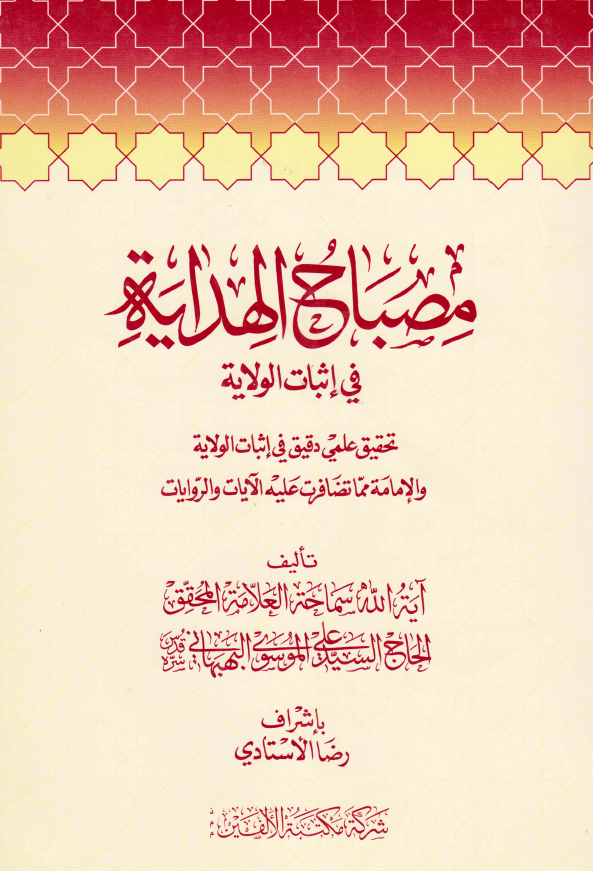 مِصبَاحُ الهِدايَةِ
في إثبات الولاية
تحقيق علمي دقيق في إثبات الولاية
والإمامة ممّا تضافرت عليه الآيات والروايات
تأليف
آية الله سماحة العلّامة المحقّق
الحاج السيّد علي الموسوي البهبهاني قدّس سرّه
بإشراف
رضا الأستادي
شركة مكتبة الألفين